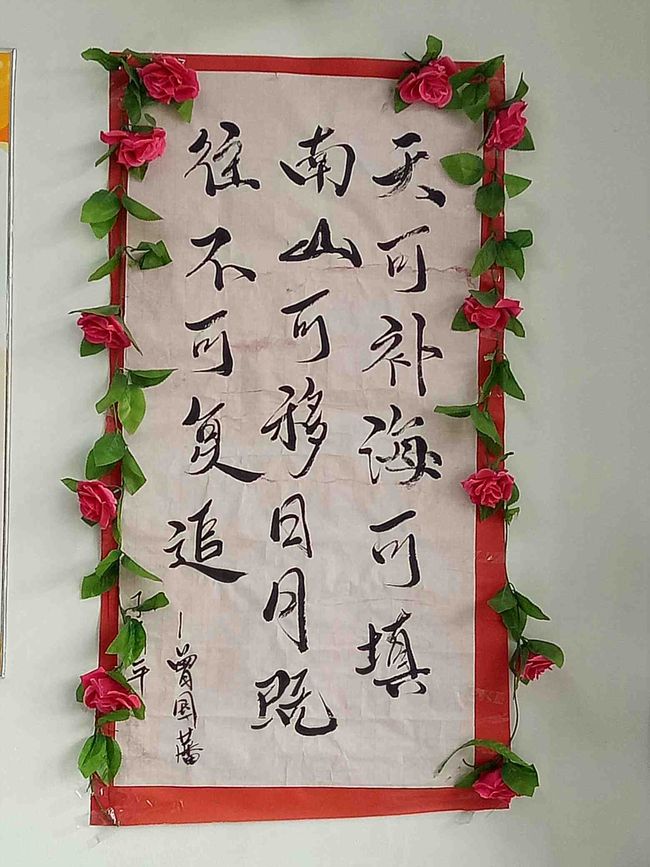 天可补海可填
南山可移日月既
往不可复追
—曾国藩